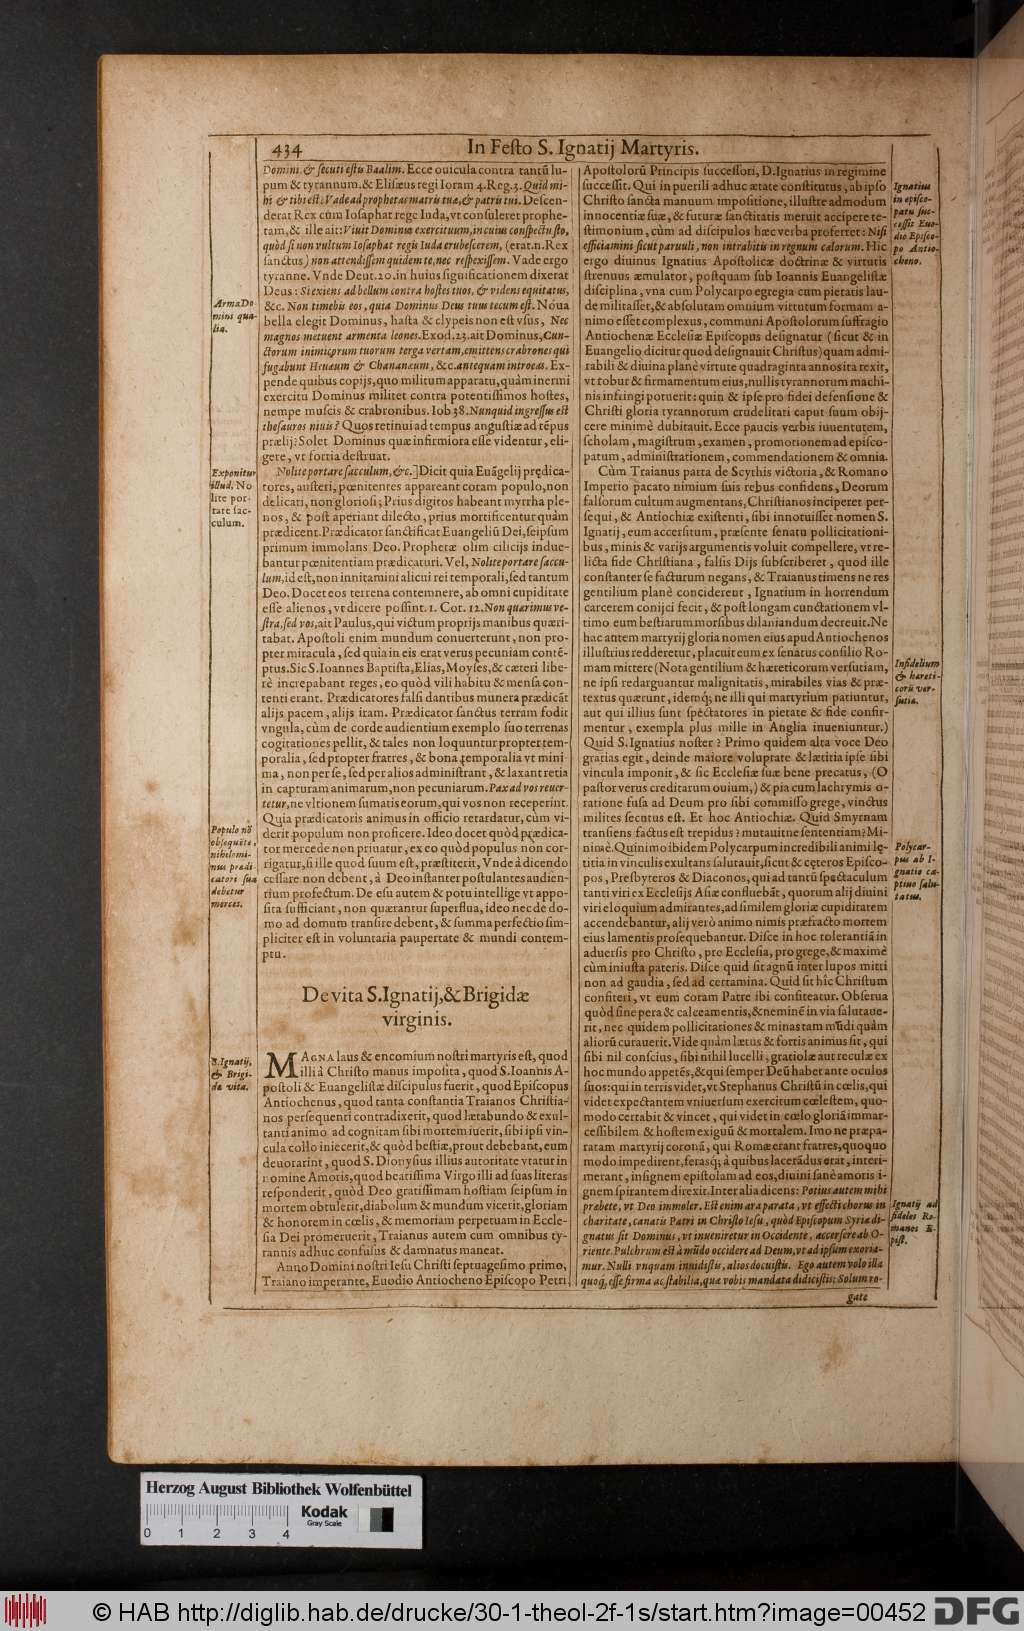 434
In Festo S. Ignatij Martyris.
Domini, & secuti estis Baalim. Ecce ovicula contra tantũ lu-
pum & tyrannum, & Elisæus regi Ioram 4. Reg. 3. Quid mi-
hi & tibi est? Vade ad prophetas matris tuæ, & patris tui. Descen-
derat Rex cùm Iosaphat rege Iuda, vt consuleret prophe-
tam, & ille ait: Viuit Dominus exercituum, in cuius conspectu sto,
quòd si non vultum Iosaphat regis Iuda erubescerem, (erat.n. Rex
sanctus) non attendissem quidem te, nec respexissem. Vade ergo
tyranne. Vnde Deut. 20. in huius significationem dixerat
Deus: Si exieris ad bellum contra hostes tuos, & videris equitatus,
&c. Non timebis eos, quia Dominus Deus tuus tecum est. Noua
bella elegit Dominus, hasta & clypeis non est vsus, Nec
magnos metuent armenta leones. Exod. 23. ait Dominus, Cun-
ctorum inimicorum tuorum terga vertam, emittens crabrones qui
fugabunt Heuæum & Chananæum, &c. antequam introeas. Ex-
pende quibus copijs, quo militum apparatu, quàm inermi
exercitu Dominus militet contra potentissimos hostes,
nempe muscis & crabronibus. Iob 38. Nunquid ingressus est
thesauros niuis? Quos retinui ad tempus angustiæ ad tẽpus
prælij? Solet Dominus quæ infirmiora esse videntur, eli-
gere, vt fortia destruat.
Nolite portare sacculum, &c.] Dicit quia Euãgelij prędica-
tores, austeri, pœnitentes appareant coram populo, non
delicati, non gloriosi; Prius digitos habeant myrrha ple-
nos, & post aperiant dilecto, prius mortificentur quàm
prædicent. Prædicator sanctificat Euangeliũ Dei, seipsum
primum immolans Deo. Prophetæ olim cilicijs indue-
bantur pœnitentiam prædicaturi. Vel, Nolite portare saccu-
lum, id est, non innitamini alicui rei temporali, sed tantum
Deo. Docet eos terrena contemnere, ab omni cupiditate
esse alienos, vt dicere possint. 1. Cor. 12. Non quærimus ve-
stra, sed vos, ait Paulus, qui victum proprijs manibus quæri-
tabat. Apostoli enim mundum conuerterunt, non pro-
pter miracula, sed quia in eis erat verus pecuniam contẽ-
ptus. Sic S. Ioannes Baptista, Elias, Moyses, & cæteri libe-
rè increpabant reges, eo quòd vili habitu & mensa con-
tenti erant. Prædicatores falsi dantibus munera prædicãt
alijs pacem, alijs iram. Prædicator sanctus terram fodit
vngula, cùm de corde audientium exemplo suo terrenas
cogitationes pellit, & tales non loquuntur propter tem-
poralia, sed propter fratres, & bona temporalia vt mini-
ma, non per se, sed per alios administrant, & laxant retia
in capturam animarum, non pecuniarum. Pax ad vos reuer-
tetur, ne vltionem sumatis eorum, qui vos non receperint.
Quia prædicatoris animus in officio retardatur, cùm vi-
derit populum non proficere. Ideo docet quòd prædica-
tor mercede non priuatur, ex eo quòd populus non cor-
rigatur, si ille quod suum est, præstiterit, Vnde à dicendo
cessare non debent, à Deo instanter postulantes audien-
tium profectum. De esu autem & potu intellige vt appo-
sita sufficiant, non quærantur superflua, ideo nec de do-
mo ad domum transire debent, & summa perfectio sim-
pliciter est in voluntaria paupertate & mundi contem-
ptu.
De vita S. Ignatij, & Brigidæ
virginis.
MAGNA laus & encomium nostri martyris est, quod
illi à Christo manus imposita, quod S. Ioannis A-
postoli & Euangelistæ discipulus fuerit, quod Episcopus
Antiochenus, quod tanta constantia Traianos Christia-
nos persequenti contradixerit, quod lætabundo & exul-
tanti animo ad cognitam sibi mortem iuerit, sibi ipsi vin-
cula collo iniecerit, & quòd bestiæ, prout debebant, eum
deuorarint, quod S. Dionysius illius autoritate vtatur in
nomine Amoris, quod beatissima Virgo illi ad suas literas
responderit, quòd Deo gratissimam hostiam seipsum in
mortem obtulerit, diabolum & mundum vicerit, gloriam
& honorem in cœlis, & memoriam perpetuam in Eccle-
sia Dei promeruerit, Traianus autem cum omnibus ty-
rannis adhuc confusus & damnatus maneat.
Anno Domini nostri Iesu Christi septuagesimo primo,
Traiano imperante, Euodio Antiocheno Episcopo Petri
Arma Do-
mini qua-
lia.
Exponitur
illud, No
lite por-
tare sac-
culum.
Populo nõ
obsequẽte,
nihilomi-
nus prædi-
catori sua
debetur
merces.
S. Ignatij,
& Brigi-
dæ vita.
Apostolorũ Principis successori, D. Ignatius in regimine
successit. Qui in puerili adhuc ætate constitutus, ab ipso
Christo sancta manuum impositione, illustre admodum
innocentiæ suæ, & futuræ sanctitatis meruit accipere te-
stimonium, cùm ad discipulos hæc verba proferret: Nisi
efficiamini sicut paruuli, non intrabitis in regnum cælorum. Hic
ergo diuinus Ignatius Apostolicæ doctrinæ & virtutis
strenuus æmulator, postquam sub Ioannis Euangelistæ
disciplina, vna cum Polycarpo egregia cum pietatis lau-
de militasset, & absolutam omnium virtutum formam a-
nimo esset complexus, communi Apostolorum suffragio
Antiochenæ Ecclesiæ Episcopus designatur (sicut & in
Euangelio dicitur quod designauit Christus) quam admi-
rabili & diuina planè virtute quadraginta annos ita rexit,
vt robur & firmamentum eius, nullis tyrannorum machi-
nis infringi potuerit: quin & ipse pro fidei defensione &
Christi gloria tyrannorum crudelitati caput suum obij-
cere minimè dubitauit. Ecce paucis verbis iuuentutem,
scholam, magistrum, examen, promotionem ad episco-
patum, administrationem, commendationem & omnia.
Cùm Traianus parta de Scythis victoria, & Romano
Imperio pacato nimium suis rebus confidens, Deorum
falsorum cultum augmentans, Christianos inciperet per-
sequi, & Antiochiæ existenti, sibi innotuisset nomen S.
Ignatij, eum accersitum, præsente senatu pollicitationi-
bus, minis & varijs argumentis voluit compellere, vt re-
licta fide Christiana, falsis Dijs subscriberet, quod ille
constanter se facturum negans, & Traianus timens ne res
gentilium planè conciderent, Ignatium in horrendum
carcerem conijci fecit, & post longam cunctationem vl-
timo eum bestiarum morsibus dilaniandum decreuit. Ne
hac autem martyrij gloria nomen eius apud Antiochenos
illustrius redderetur, placuit eum ex senatus consilio Ro-
mam mittere (Nota gentilium & hæreticorum versutiam,
ne ipsi redarguantur malignitatis, mirabiles vias & præ-
textus quærunt, idemq; ne illi qui martyrium patiuntur,
aut qui illius sunt spectatores in pietate & fide confir-
mentur, exempla plus mille in Anglia inueniuntur.)
Quid S. Ignatius noster? Primo quidem alta voce Deo
gratias egit, deinde maiore voluptate & lætitia ipse sibi
vincula imponit, & sic Ecclesiæ suæ bene precatus, (O
pastor verus creditarum ouium,) & pia cum lachrymis o-
ratione fusa ad Deum pro sibi commisso grege, vinctus
milites secutus est. Et hoc Antiochiæ. Quid Smyrnam
transiens factus est trepidus? mutauitne sententiam? Mi-
nimè. Quinimo ibidem Polycarpum incredibili animi lę-
titia in vinculis exultans salutauit, sicut & cęteros Episco-
pos, Presbyteros & Diaconos, qui ad tantũ spectaculum
tanti viri ex Ecclesijs Asiæ confluebãt, quorum alij diuini
viri eloquium admirantes, ad similem gloriæ cupiditatem
accendebantur, alij verò animo nimis præfracto mortem
eius lamentis prosequebantur. Disce in hoc tolerantiã in
aduersis pro Christo, pro Ecclesia, pro grege, & maximè
cùm iniusta pateris. Disce quid sit agnũ inter lupos mitti
non ad gaudia, sed ad certamina. Quid sit hîc Christum
confiteri, vt eum coram Patre ibi confiteatur. Obserua
quòd sine pera & calceamentis, & neminẽ in via salutaue-
rit, nec quidem pollicitationes & minas tam mũdi quàm
aliorũ curauerit. Vide quàm lætus & fortis animus sit, qui
sibi nil conscius, sibi nihil lucelli, gratiolæ aut reculæ ex
hoc mundo appetẽs, & qui semper Deũ habet ante oculos
suos: qui in terris videt, vt Stephanus Christũ in cœlis, qui
videt expectantem vniuersum exercitum cœlestem, quo-
modo certabit & vincet, qui videt in cœlo gloriã immar-
cessibilem & hostem exiguũ & mortalem. Imo ne præpa-
ratam martyrij coronã, qui Romæ erant fratres, quoquo
modo impedirent, ferasq; à quibus lacerãdus erat, interi-
merant, insignem epistolam ad eos, diuini sanè amoris i-
gnem spirantem direxit. Inter alia dicens: Potius autem mihi
præbete, vt Deo immoler. Est enim ara parata, vt effecti chorus in
charitate, canatis Patri in Christo Iesu, quòd Episcopum Syriæ di-
gnatus sit Dominus, vt inueniretur in Occidente, accersere ab O-
riente. Pulchrum est à mũdo occidere ad Deum, vt ad ipsum exoria-
mur. Nulli vnquam inuidistis, alios docuistis. Ego autem volo illa
quoq; esse firma ac stabilia, quæ vobis mandata didicistis: Solum ro-
gate
Ignatius
in episco-
patu suc-
cessit Euo-
dio Episco-
po Antio-
cheno.
Infidelium
& hæreti-
corũ ver-
sutia.
Polycar-
pus ab I-
gnatio ca-
ptiuo salu-
tatus.
Ignatij ad
fideles Ro-
manos E-
pist.
Herzog August Bibliothek Wolfenbüttel
Kodak
Gray Scale
0 1 2 3 4
© HAB http://diglib.hab.de/drucke/30-1-theol-2f-1s/start.htm?image=00452
DFG